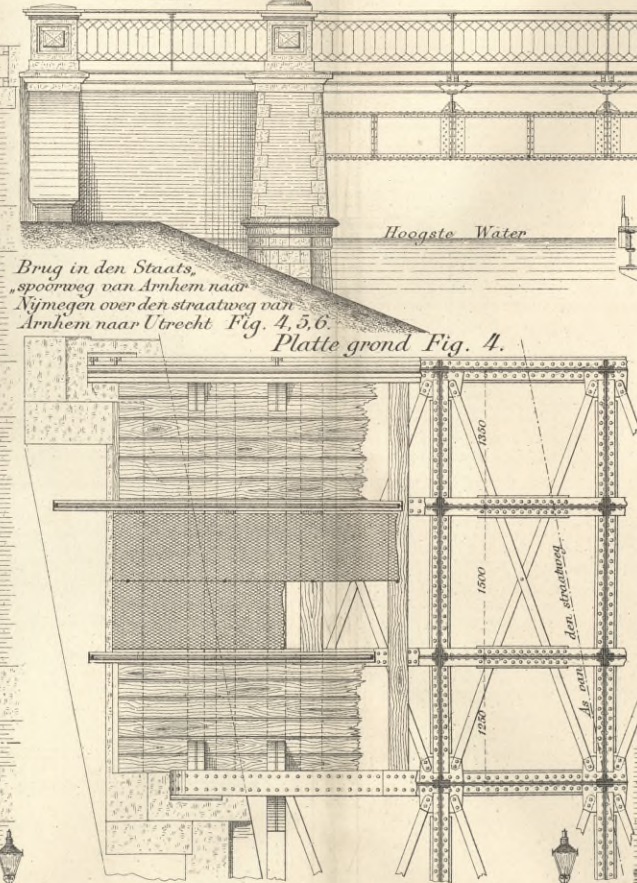 Hoogste Water
Brug in den Staats„
„spoorweg van Arnhem naar
Nijmegen over den straatweg van
Arnhem naar Utrecht Fig. 4, 5, 6.
Platte grond Fig. 4.
1350
1500
1250
As van den straatweg